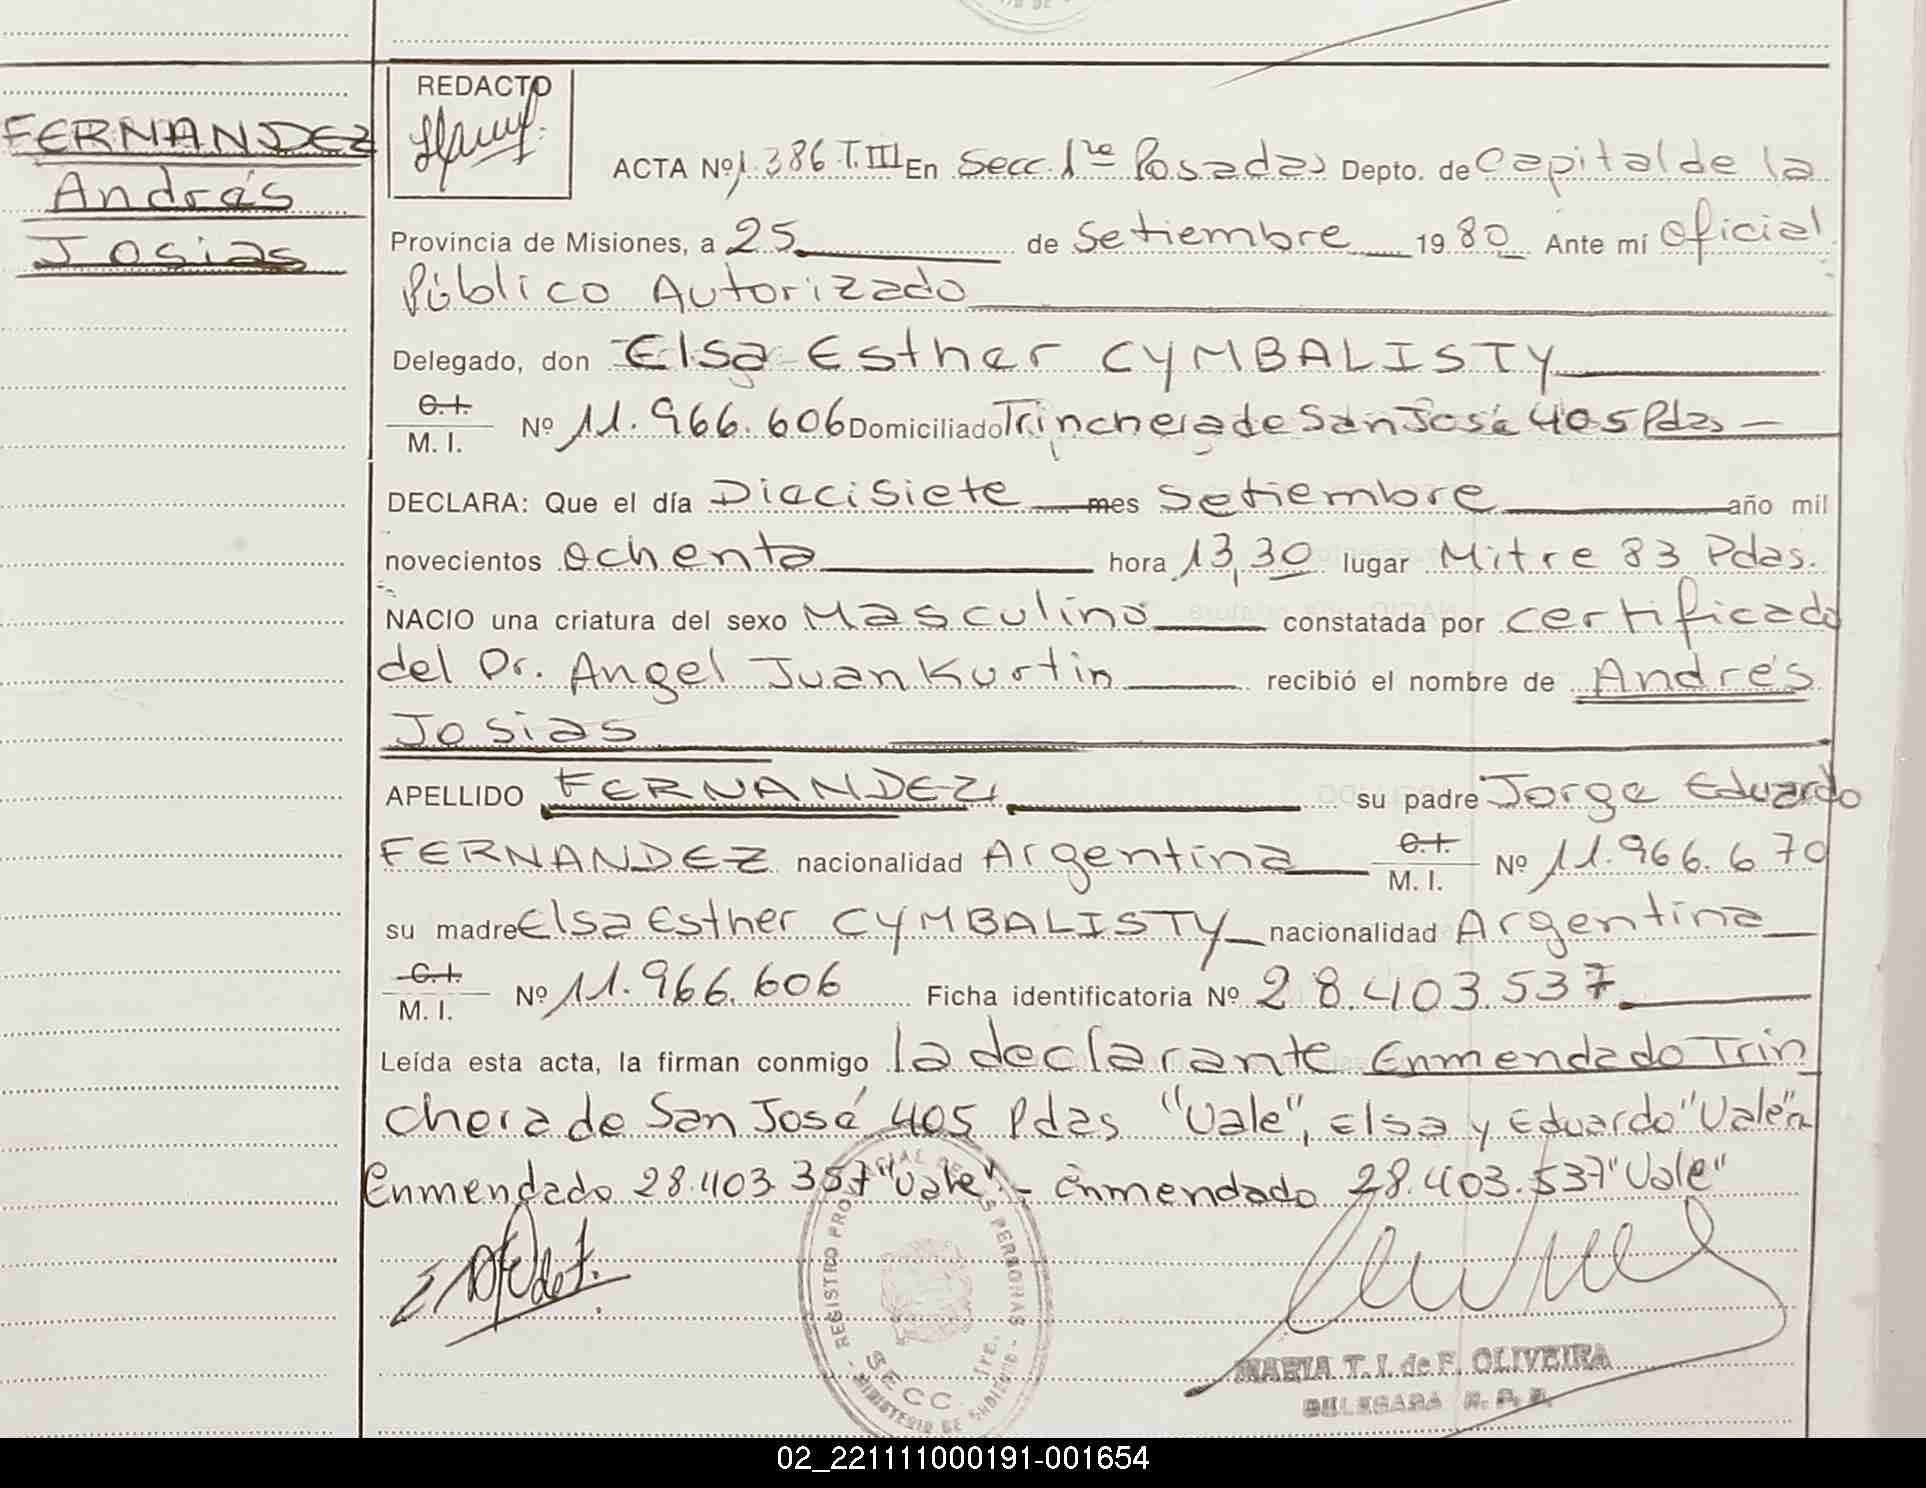 FERNANDEZ
Andrés
Josias
REDACTO
ACTA Nº 1.386 T.III En Secc. 1re Posadas Depto. de Capital de la
Provincia de Misiones, a 25 de Setiembre 1980 Ante mí Oficial
Público Autorizado
Delegado, don Elsa Esther CYMBALISTY
C.I.
M. I. Nº 11.966.606 Domiciliado Trinchera de San José 405 Pdas
DECLARA: Que el día Diecisiete mes Setiembre año mil
novecientos ochenta hora 13,30 lugar Mitre 83 Pdas.
NACIO una criatura del sexo Masculino constatada por certificado
del Dr. Angel Juan Kurtin recibió el nombre de Andrés
Josias
APELLIDO FERNANDEZ su padre Jorge Eduardo
FERNANDEZ nacionalidad Argentina C.I. M. I. Nº 11.966.670
su madre Elsa Esther CYMBALISTY nacionalidad Argentina
C.I.
M. I. Nº 11.966.606 Ficha identificatoria Nº 28.403.537
Leída esta acta, la firman conmigo la declarante Enmendado Trin
chera de San José 405 Pdas "Vale", Elsa y Eduardo "Vale"
Enmendado 28.403.357 "Vale" - enmendado 28.403.537 "Vale"
REGISTRO PROVINCIAL DE LAS PERSONAS
SECC. 1re.
MINISTERIO DE GOBIERNO
MARIA T. I. de F. OLIVEIRA
DELEGADA R. P. P.
02_221111000191-001654